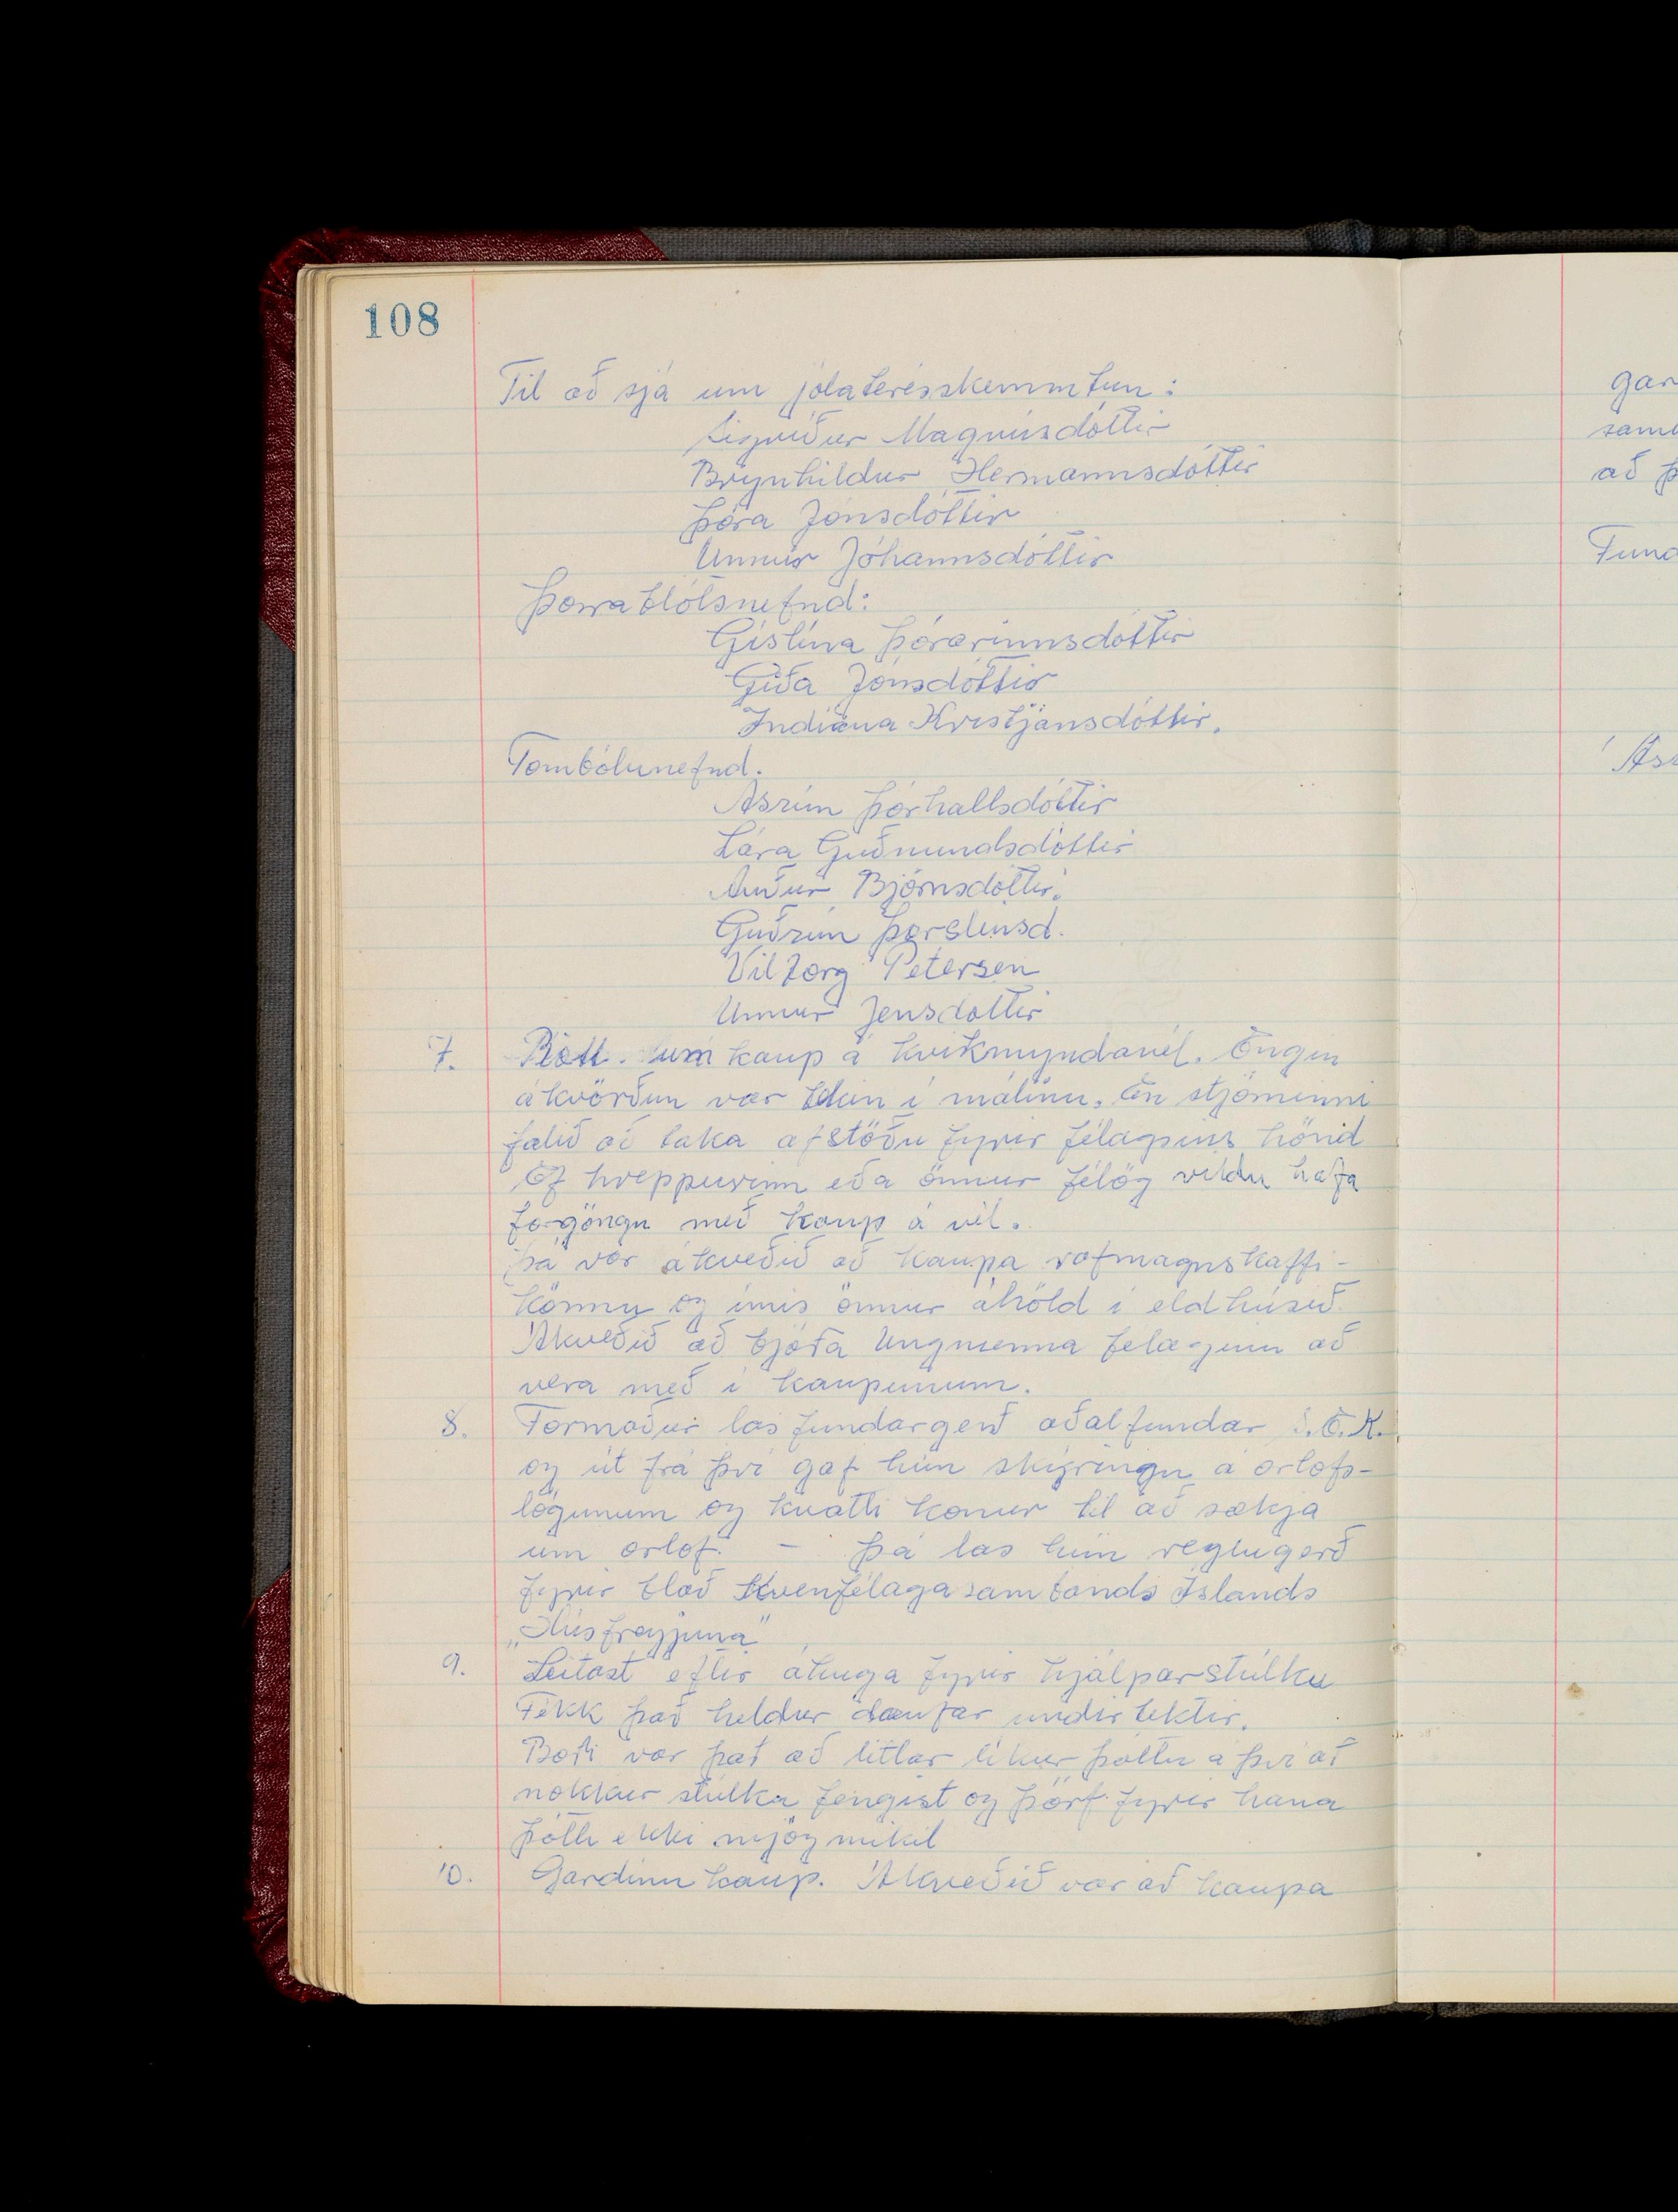 108
Til að sjá um jólatrésskemmtun:
Sigríður Magnúsdóttir
Brynhildur Hermannsdóttir
Þóra Jónsdóttir
Unnur Jóhannsdóttir
Þorrablótsnefnd:
Gíslína Þórarinnsdóttir
Gíða Jónsdóttir
Indíana Kristjánsdóttir.
Tombólunefnd.
Ásrún Þórhallsdóttir
Lára Guðmundsdóttir
Auður Björnsdóttir.
Guðrún Þorsteinsd.
Vilborg Petersen
Unnur Jensdóttir
7. Rætt um kaup á kvikmyndavél. Engin
ákvörðun var tekin í málinu. En stjórninni
falið að taka afstöðu fyrir félagsins hönd
Ef hreppurinn eða önnur félög vildu hafa
forgöngu með kaup á vél.
Þá var ákveðið að kaupa rafmagnskaffi-
könnu og ímis önnur áhöld í eldhúsið.
Ákveðið að bjóða Ungmenna félaginu að
vera með í kaupunum.
8. Formaður las fundargerð aðalfundar S.B.K.
og út frá því gaf hún skýringu á orlofs-
lögunum og hvatti konur til að sækja
um orlof. - Þá las hún reglugerð
fyrir blað Kvenfélagasambands Íslands
„Húsfreyjuna"
9. Leitast eftir áhuga fyrir hjálparstúlku
Fékk það heldur daufar undirtektir.
Bæði var það að litlar líkur þóttu á því að
nokkur stúlka fengist og þörf fyrir hana
þótti ekki mjög mikil
10. Gardínu kaup. Ákveðið var að kaupa
gar
sam
að þ
Fund